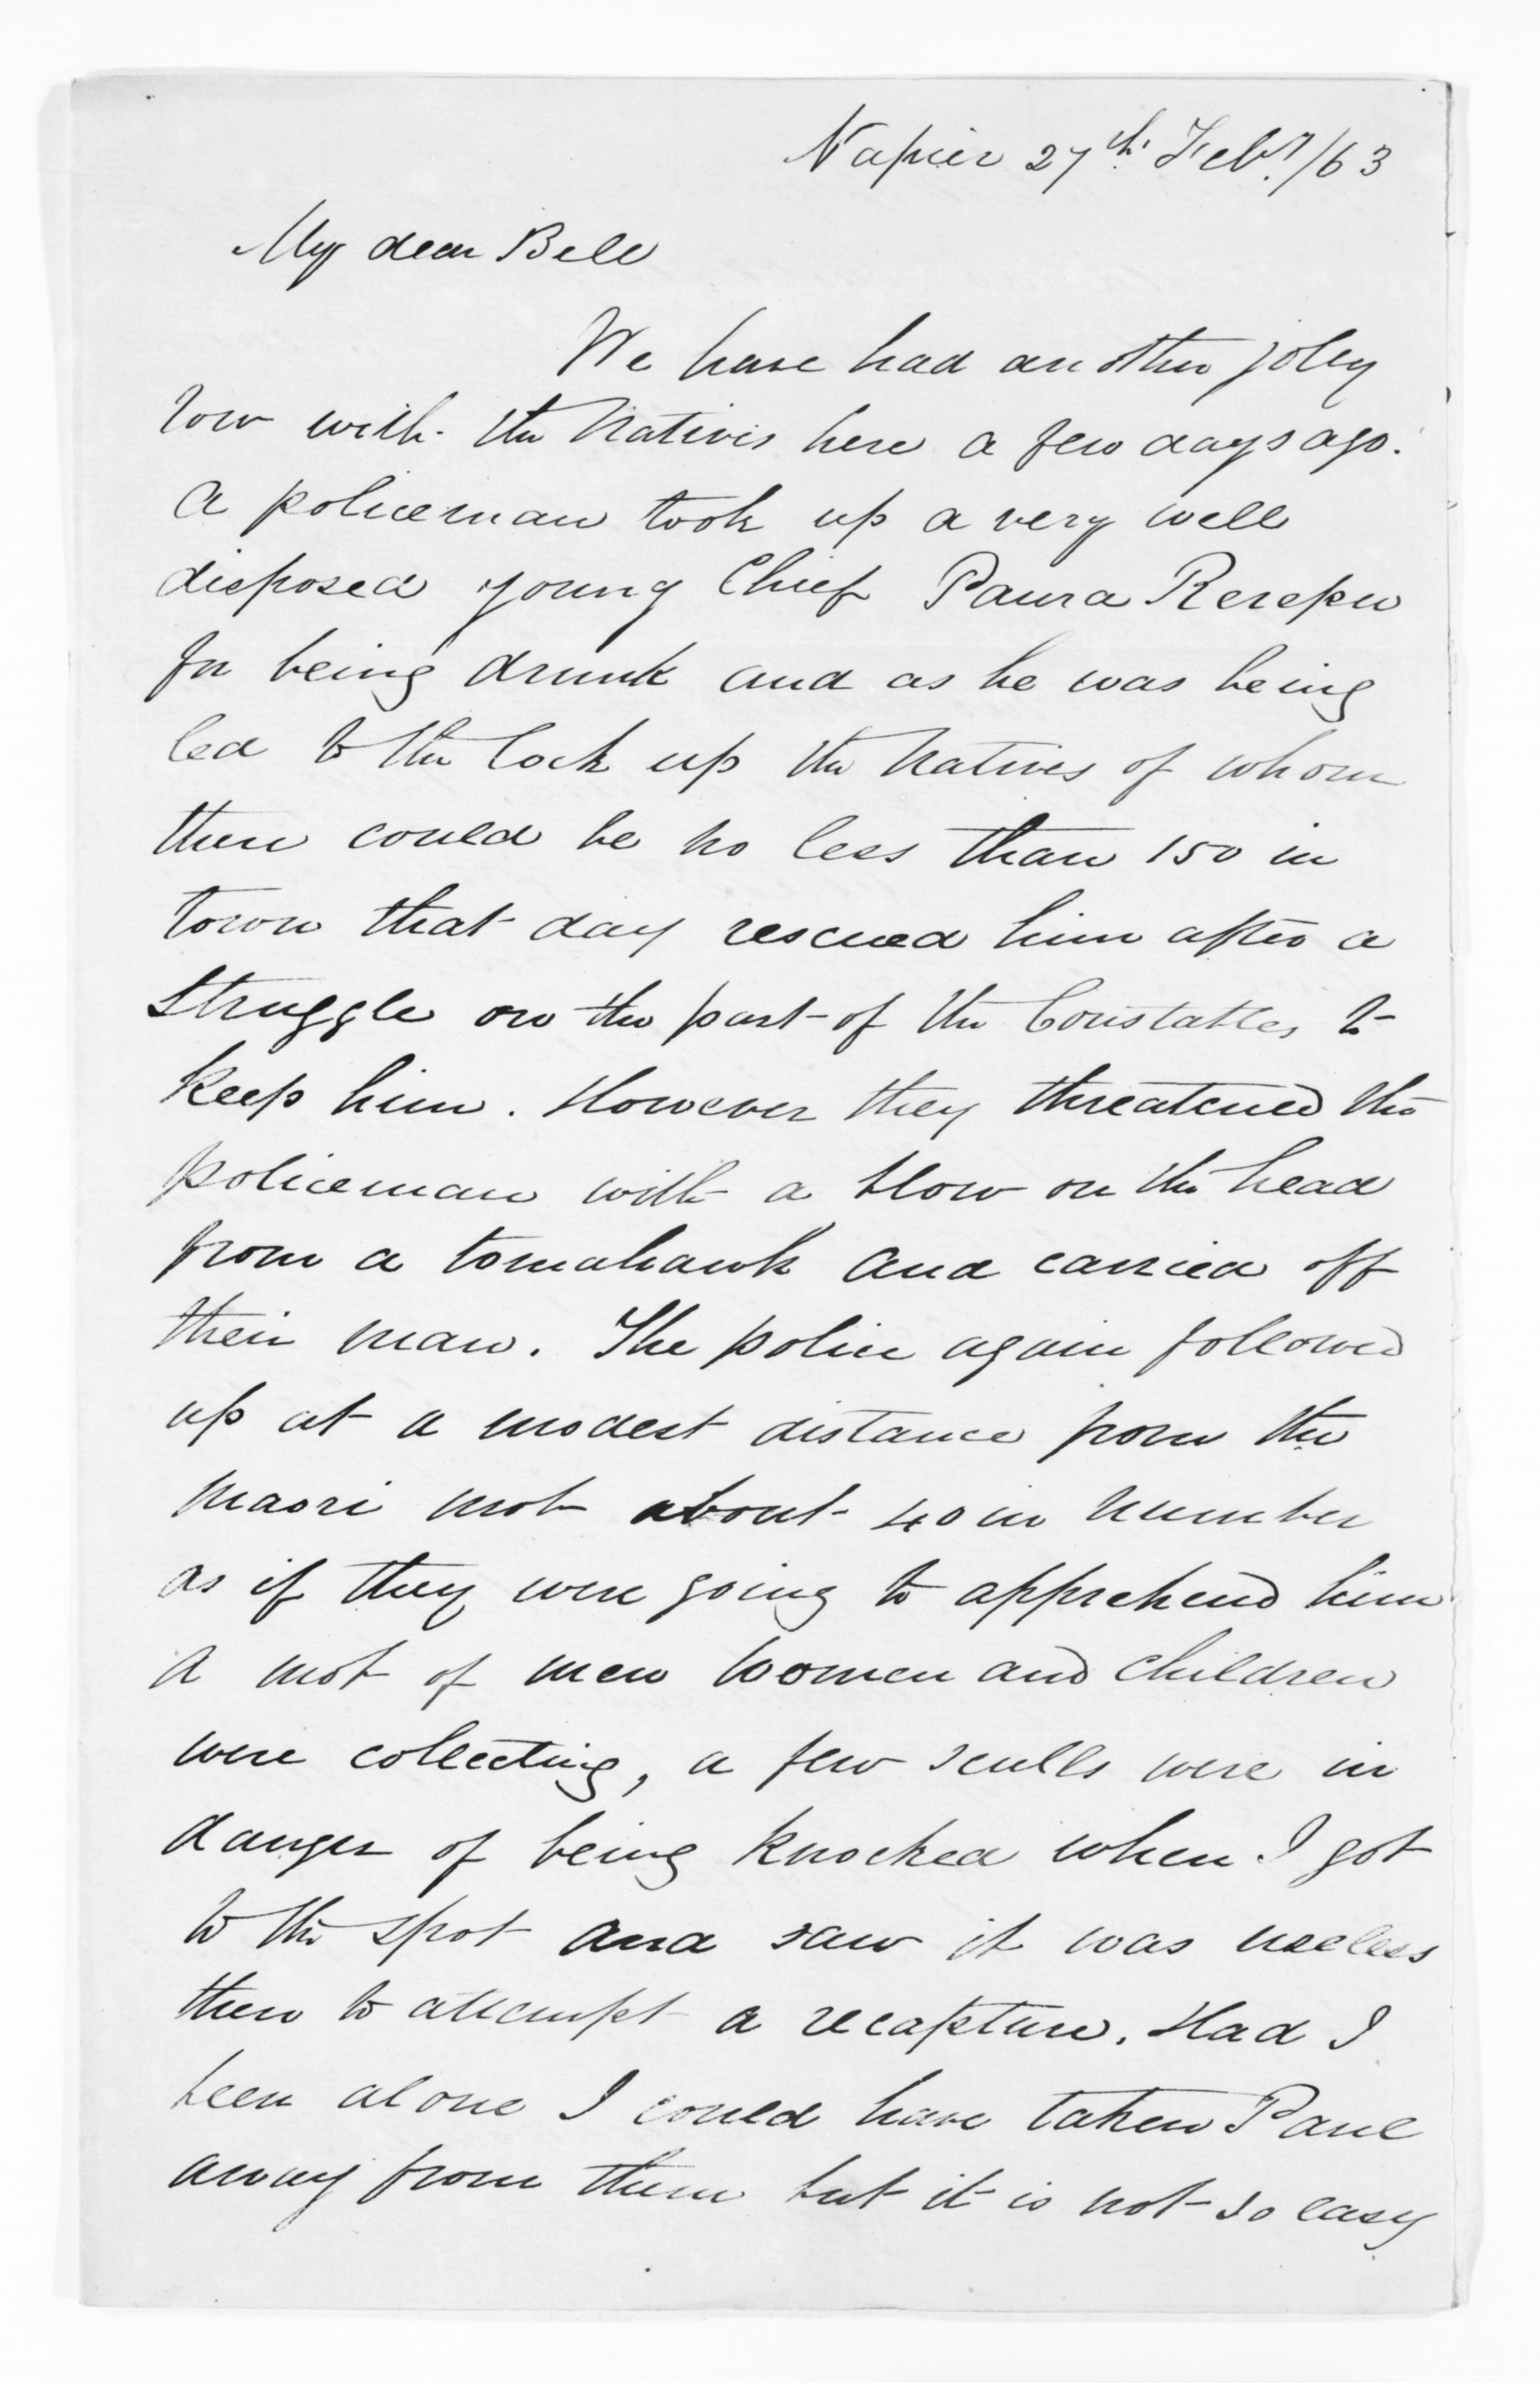 Napier 27th Feby/63
My dear Bell
We have had another jolly
row with the Natives here a few days ago.
A policeman took up a very well
disposed young Chief Paura Rerepu
for being drunk and as he was being
led to the lock up the Natives of whom
there could be no less than 150 in
town that day rescued him after a
struggle on the part of the Constables to
keep him. However they threatened the
policeman with a blow on the head
from a tomahawk and carried off
their man. The police again followed
up at a modest distance from the
maori mob about 40 in number
as if they were going to apprehend him
A mob of men women and children
were collecting, a few sculls were in
danger of being knocked when I got
to the spot and saw it was useless
then to attempt a recapture. Had I
been alone I could have taken Paul
away from them but it is not so easy